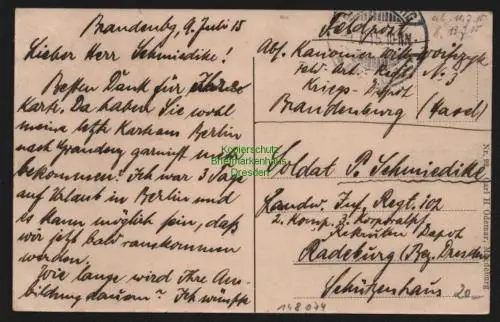 Brandenbg, 9. Juli 15
Lieber Herr Schmiedike!
Besten Dank für Ihre
Karte. Da haben Sie wohl
meine letzte Karte aus Berlin
nach Graudenz garnicht mehr
bekommen? Ich war 3 Tage
auf Urlaub in Berlin und
es kann möglich sein, daß
wir jetzt bald rauskommen
werden.
Wie lange wird Ihre Aus-
bildung dauern? Ich wünschte
Feldpost
Abs. Kanonier
Feld-Art.-Regt. N. 3
Kriegs-Depot
Brandenburg (Havel)
Soldat P. Schmiedike
Landw. Inf. Regt. 102
2. Komp. 3. Korporalsch.
Rekruten Depot
Radeburg (Bez. Dresden
Schützenhaus
148 074
20.-
Kopierschutz
Briefmarkenhaus
Dresden
H. Odemar, Magdeburg